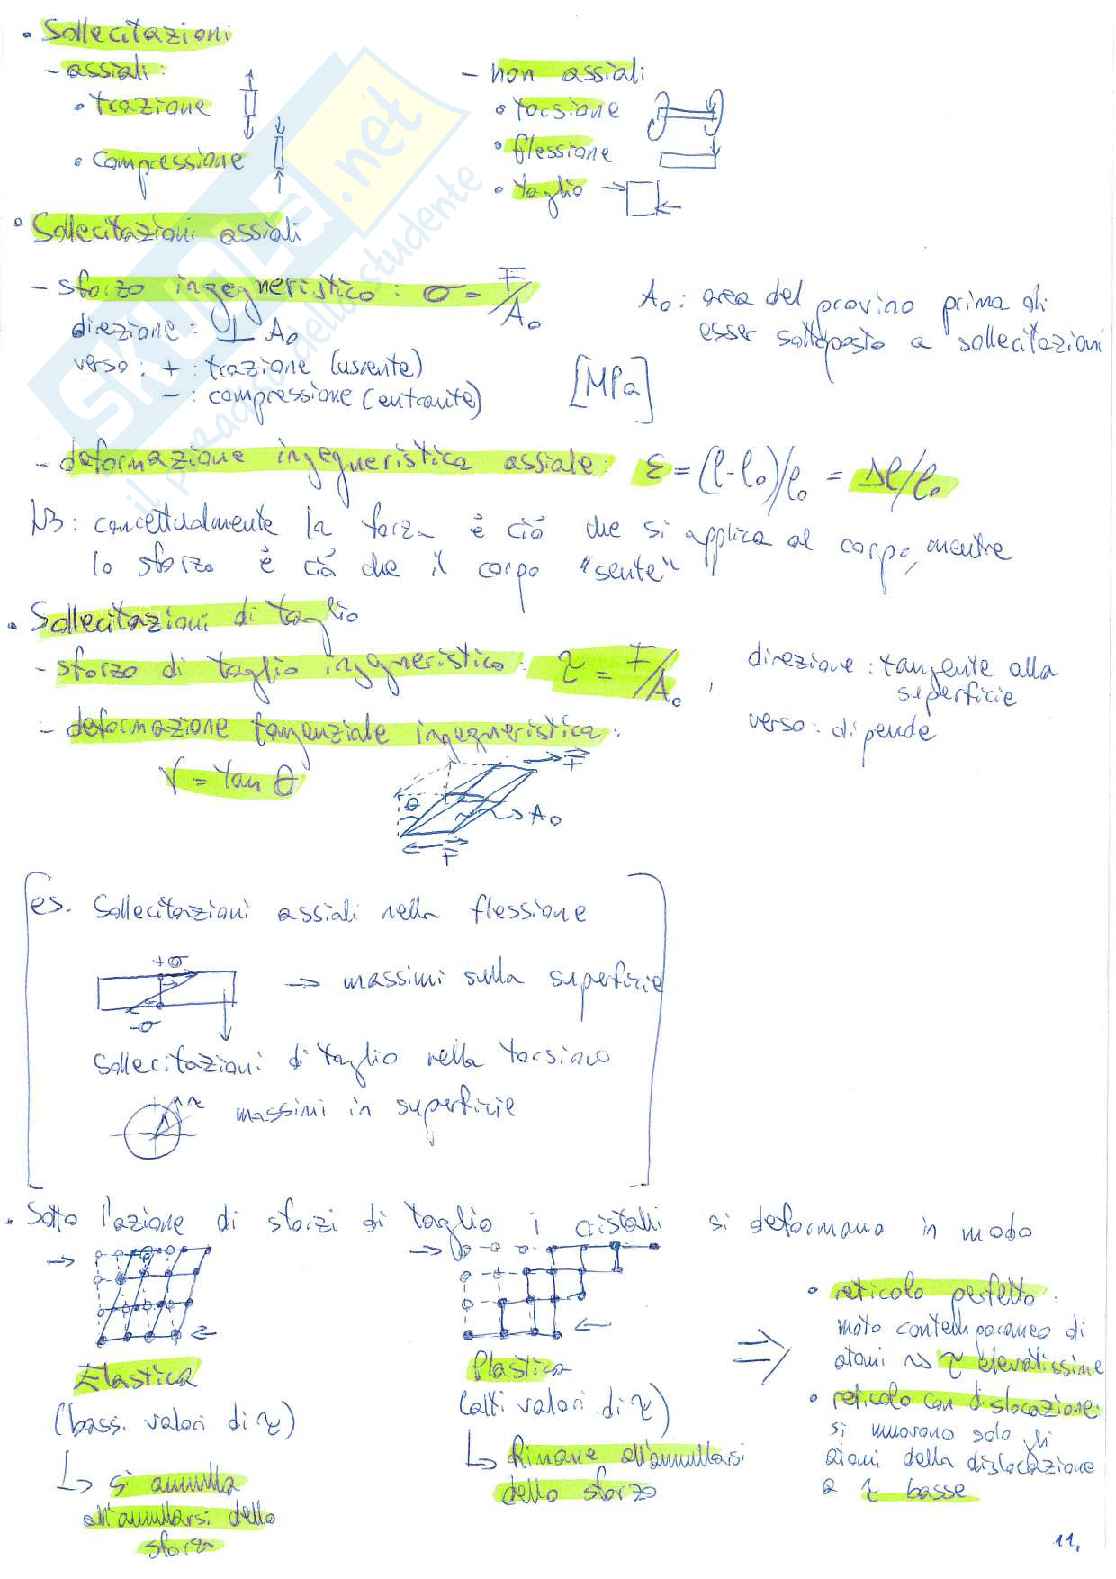 • Sollecitazioni
- assiali:
• trazione
• compressione
- non assiali
• torsione
• flessione
• taglio
• Sollecitazioni assiali
- sforzo ingegneristico: σ = F/A₀
A₀: area del provino prima di
esser sottoposto a sollecitazioni
direzione: ⊥ A₀
verso: + : trazione (uscente)
- : compressione (entrante)
[MPa]
- deformazione ingegneristica assiale: ε = (l-l₀)/l₀ = Δl/l₀
NB: concettualmente la forza è ciò che si applica al corpo, mentre
lo sforzo è ciò che il corpo "sente"
• Sollecitazioni di taglio
- sforzo di taglio ingegneristico: τ = F/A₀,
direzione: tangente alla
superficie
verso: dipende
- deformazione tangenziale ingegneristica:
γ = tan θ
θ
F
A₀
F
es. Sollecitazioni assiali nella flessione
+σ
-σ
→ massimi sulla superficie
Sollecitazioni di taglio nella torsione
τ
massimi in superficie
• Sotto l'azione di sforzi di taglio i cristalli si deformano in modo
Elastica
(bassi valori di τ)
↳ si annulla
all'annullarsi dello
sforzo
Plastica
(alti valori di τ)
↳ Rimane all'annullarsi
dello sforzo
⇒
• reticolo perfetto:
moto contemporaneo di
atomi ~> τ elevatissime
• reticolo con dislocazione:
si muovono solo gli
atomi della dislocazione
a τ basse
11.
SKUOLA.net
il paradiso dello studente